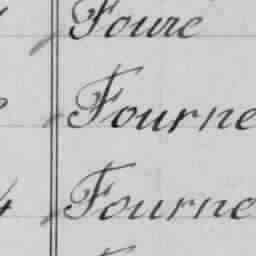 Foure
Fourne
4 Fourne